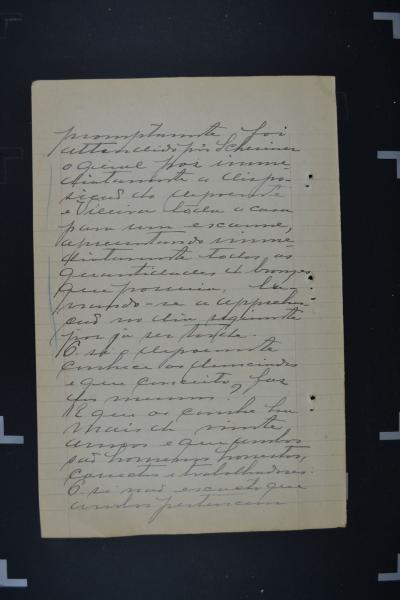 promptamente foi
attendido por Scheiner
o qual poz imme-
diatamente a dispo-
sição do depoente
e Vieira toda a casa
para um exame,
apresentando imme-
diatamente todas as
quantidades de bronze
que possuia,
-se a apprehen-
ção no dia seguinte
por já ser tarde.
O depoente
conhece os denunciados
e que conceito faz
dos mesmos.
R que os conhece ha
mais de vinte
annos e que ambos
são homens honestos,
correctos e trabalhadores.
O se não é exacto que
ambos pertencem